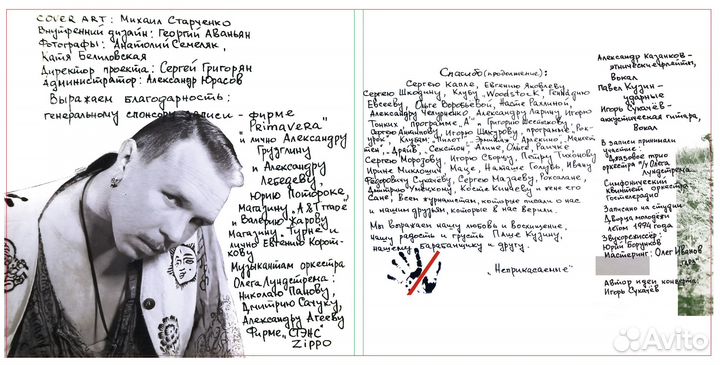 COVER ART: Михаил Старченко
Внутренний дизайн: Георгий Аваньян
Фотографы: Анатолий Семеляк,
Катя Белиловская
Директор проекта: Сергей Григорян
Администратор: Александр Юрасов
Выражаем благодарность:
генеральному спонсору записи - фирме
"PRIMAVERA"
и лично Александру
Грузглину
и Александру
Лебедеву,
Юрию Потороке,
магазину "A&T Trade"
и Валерию Харову
Магазину Турне и
лично Евгению Корот-
кову
Музыкантам оркестра
Олега Лундстрема:
Николаю Панову,
Дмитрию Сачуку,
Александру Агееву
Фирме "СТЭНС"
ZIPPO
Спасибо (продолжение):
Сергею Капле, Евгению Яковлеву
Сергею Шкодину, Клубу "Woodstock", Геннадию
Евсееву, Ольге Воробьевой, Насте Рахлиной,
Александру Чепурченко, Александру Ларину, Игорю
Тонких, программе "А" и Григорию Шестакову,
Сергею Анпилову, Игорю Шкурову, программе "Рок-
урок", Клубам: "Пилот", "Эрмитаж", Арлекино, Манхет-
тен, "Драйв", "Секстон", Алине, Ольге, Раичке
Сергею Морозову, Игорю Сборчу, Петру Тихонову
Ирине Миклошич, Маце, Наташе Голубь, Ивану
Федоровичу Сукачёву, Сергею Мазаеву, Роксалане,
Дмитрию Умецкому, Косте Кинчеву и жене его
Сане, Всем журналистам, которые писали о нас
и нашим друзьям, которые в нас верили.
Мы выражаем нашу любовь и восхищение,
нашу радость и грусть Паше Кузину,
нашему барабанщику и другу.
"Неприкасаемые"
Александр Казанков -
этнические флейты,
вокал
Павел Кузин -
ударные
Игорь Сукачёв -
акустическая гитара,
Вокал
В записи принимали
участие:
Джазовое трио
оркестра п/у Олега
Лундстрема
Симфонический
квинтет оркестра
Гостелерадио
Записано на студии
Дворца молодёжи
летом 1994 года
Звукорежиссер:
Юрий Богданов
Мастеринг: Олег Иванов
Автор идеи конверта:
Игорь Сукачёв
Avito